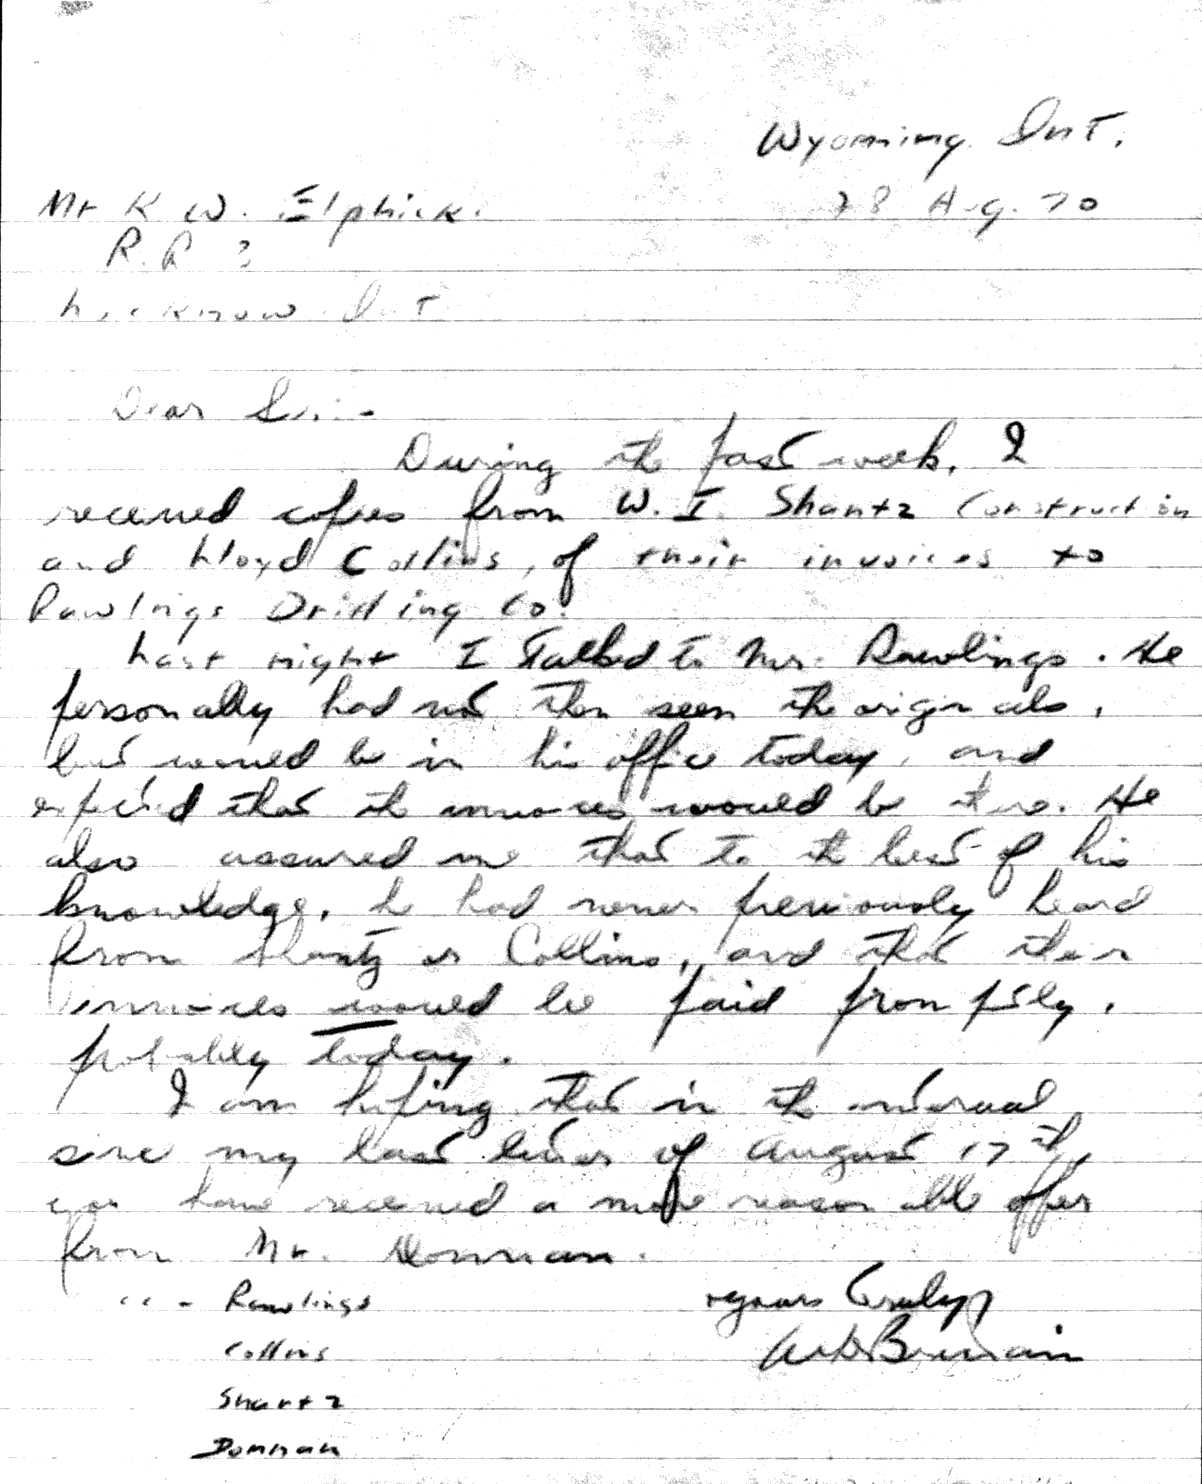 Wyoming Ont.
Mr K W. Elphick.
28 Aug. 70
R.R 3
Lucknow Ont
Dear Sir:-
During the past week, I
received copies from W.I. Shantz Construction
and Lloyd Collins, of their invoices to
Rawlings Drilling Co.
Last night I talked to Mr. Rawlings. He
personally had not then seen the originals,
but would be in his office today, and
expected that the invoices would be there. He
also assured me that to the best of his
knowledge, he had never previously heard
from Shantz or Collins, and that their
invoices would be paid promptly,
probably today.
I am hoping that in the interval
since my last letter of August 17th,
you have received a more reasonable offer
from Mr. Donnan.
cc - Rawlings
Yours truly
Collins
Shantz
Donnan